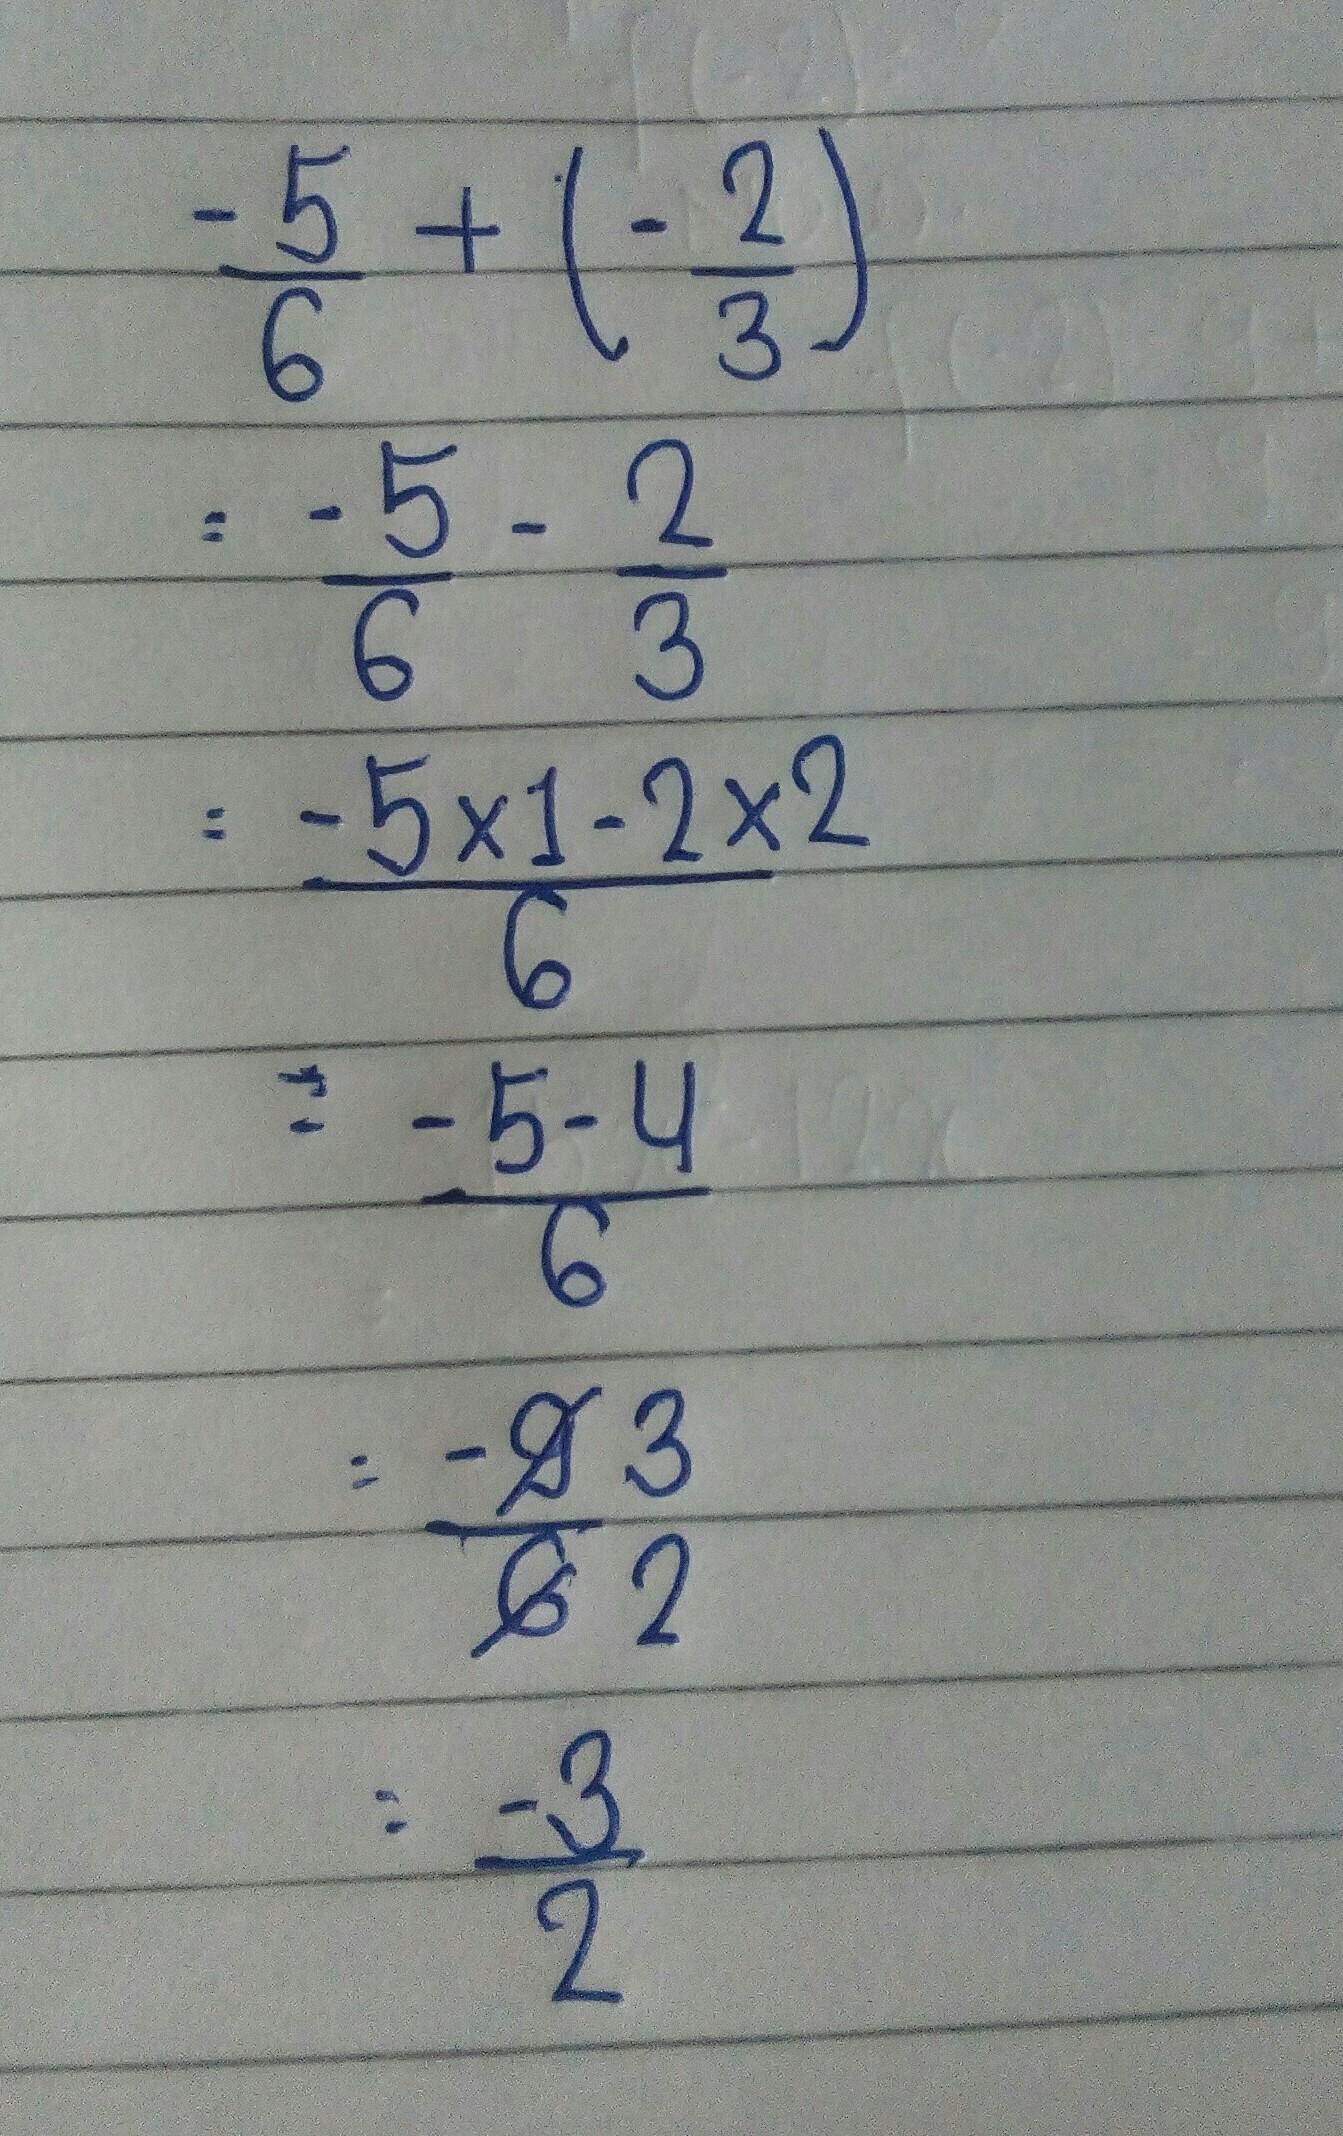 -5/6 + (-2/3)
= -5/6 - 2/3
= -5x1-2x2/6
= -5-4/6
= -9 3/6 2
= -3/2